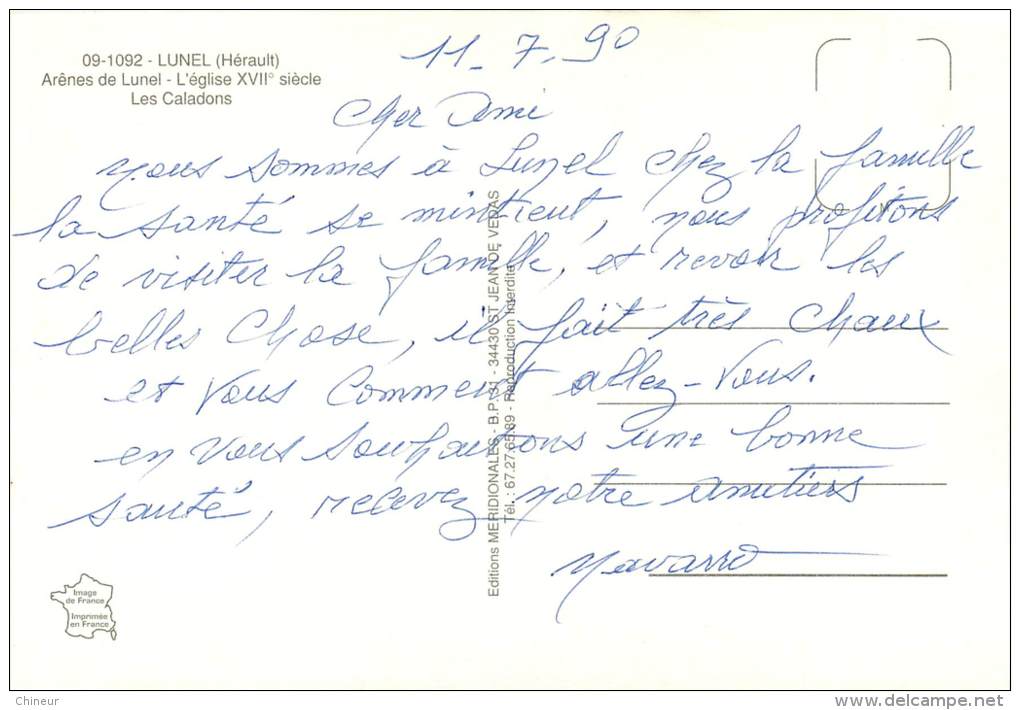 09-1092 - LUNEL (Hérault)
Arênes de Lunel - L'église XVII° siècle
Les Caladons
11_ 7. 90
Cher Ami
nous sommes à Lunel chez la famille
la santé se mintient, nous profitons
de visiter la famille, et revoir les
belles Chose, il fait très Chaux
et Vous Comment allez-Vous.
en Vous Souhaitons une bonne
santé, recevez notre amitiers
Navarro
Editions MERIDIONALES - B.P. 31 - 34430 ST JEAN DE VEDAS
Tél. : 67.27.65.89 - Reproduction Interdite
Image
de France
Imprimée
en France
Chineur
www.delcampe.net